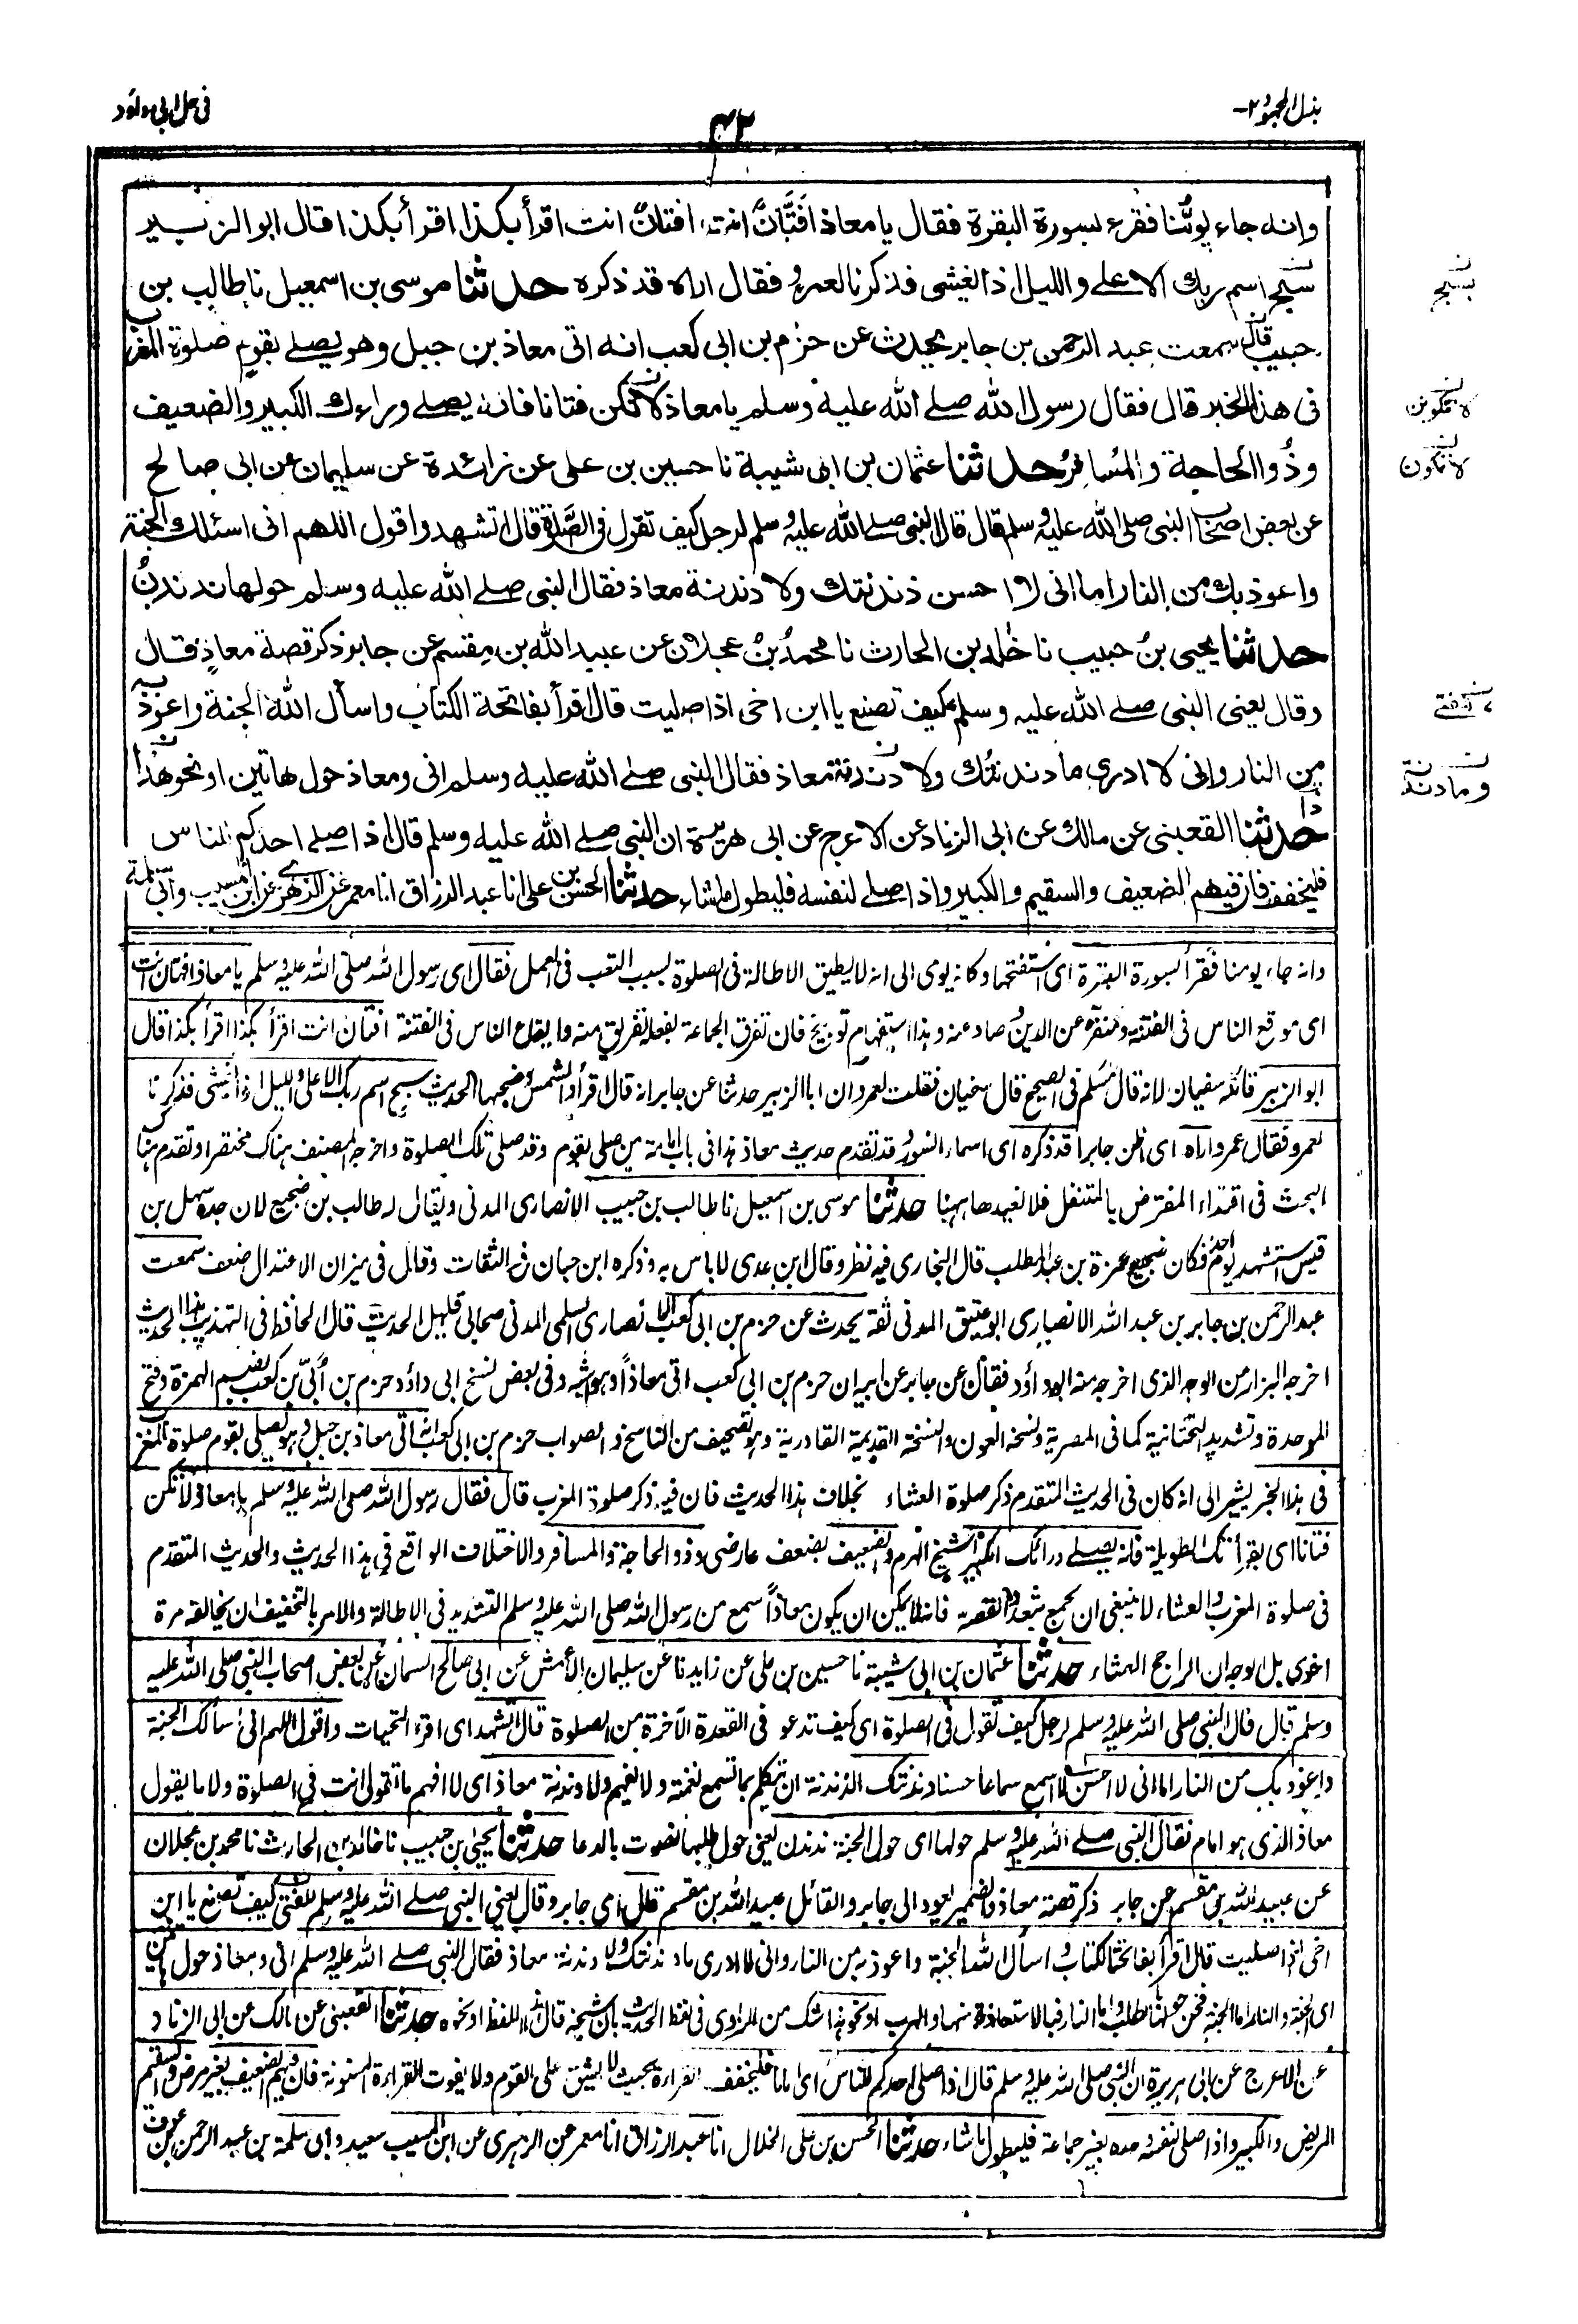 بذل المجهود-٢
٤٢
فى حل ابى داود
وانه جاء يومنا فقرء بسورة البقرة فقال يا معاذ افتّانٌ انت، افتانٌ انت اقرأ بكذا اقرأ بكذا قال ابو الزبير
سبح اسم ربك الاعلے والليل اذا يغشى فذكرنا لعمرو فقال اراه قد ذكره حدثنا موسى بن اسمعيل نا طالب بن
حبيب قال سمعت عبد الرحمن بن جابر يحدث عن حزم بن ابى كعب انه اتى معاذ بن جبل وهو يصلے بقوم صلوة المغرب
فى هذا الخبر قال فقال رسول الله صلے الله عليه وسلم يا معاذ لا تكن فتانا فانه يصلے وراءك الكبير والضعيف
وذو الحاجة والمسافر حدثنا عثمان بن ابى شيبة نا حسين بن على عن زائدة عن سليمان عن ابى صالح
عن بعض اصحاب النبى صلى الله عليه وسلم قال قال النبى صلے الله عليه وسلم لرجل كيف تقول فى الصلوة قال اتشهد واقول اللهم انى اسئلك الجنة
واعوذ بك من النار اما انى لا احسن دندنتك ولا دندنة معاذ فقال النبى صلے الله عليه وسلم حولها ندندن
حدثنا يحيى بن حبيب نا خالد بن الحارث نا محمد بن عجلان عن عبيد الله بن مقسم عن جابر ذكر قصة معاذ قال
وقال يعنى النبى صلے الله عليه وسلم كيف تصنع يا ابن اخى اذا صليت قال اقرأ بفاتحة الكتاب واسأل الله الجنة واعوذ به
من النار وانى لا ادرى ما دندنتك ولا دندنة معاذ فقال النبى صلے الله عليه وسلم انى ومعاذ حول هاتين او نحو هذا
حدثنا القعنبى عن مالك عن ابى الزناد عن الاعرج عن ابى هريرة ان النبى صلے الله عليه وسلم قال اذا صلے احدكم للناس
فليخفف فان فيهم الضعيف والسقيم والكبير واذا صلے لنفسه فليطول ما شاء حدثنا الحسن بن على انا عبد الرزاق انا معمر عن الزهرى عن ابن المسيب وابى سلمة
بسبح
لا تكونن
لا تكون
للفتى
وما دندنة
وانه جاء يومنا فقرأ بسورة البقرة اى استفتحها وكانه يومى الى انه لا يطيق الاطالة فى الصلوة بسبب التعب فى العمل فقال اى رسول الله صلى الله عليه وسلم يا معاذ افتان انت
اى موقع الناس فى الفتنة ومنفره عن الدين وصاد عنه وهذا استفهام توبيخ فان تفرق الجماعة بفعله تفريق منه وايقاع الناس فى الفتنة افتان انت اقرأ بكذا اقرأ بكذا قال
ابو الزبير قائله سفيان لانه قال مسلم فى الصحيح قال سفيان فقلت لعمرو ان ابا الزبير حدثنا عن جابر انه قال اقرأ والشمس وضحها الحديث سبح اسم ربك الاعلى والليل اذا يغشى فذكرنا
لعمرو فقال عمرو اراه اى اظن جابرا قد ذكره اى اسماء السور قد تقدم حديث معاذ هذا فى باب امامة من صلى بقوم وقد صلى تلك الصلوة واخرجه المصنف هناك مختصرا وتقدم هناك
البحث فى اقتداء المفترض بالمتنفل فلا نعيدها ههنا حدثنا موسى بن اسمعيل نا طالب بن حبيب الانصارى المدنى ويقال له طالب بن ضجيع لان جده سهل بن
قيس استشهد يوم احد فكان ضجيع حمزة بن عبد المطلب قال البخارى فيه نظر وقال ابن عدى لا باس به وذكره ابن حبان فى الثقات وقال فى ميزان الاعتدال ضعف سمعت
عبد الرحمن بن جابر بن عبد الله الانصارى ابو عتيق المدنى ثقة يحدث عن حزم بن ابى كعب الانصارى السلمى المدنى صحابى قليل الحديث قال الحافظ فى التهذيب هذا الحديث
اخرجه البزار من الوجه الذى اخرجه منه ابو داؤد فقال عن جابر عن ابيه ان حزم بن ابى كعب اتى معاذاً وهو اشبه وفى بعض نسخ ابى داؤد حزم بن أُبىّ بن كعب بضم الهمزة وفتح
الموحدة وتشديد التحتانية كما فى المصرية ونسخة العون والنسخة القديمة القادرية وهو تصحيف من الناسخ والصواب حزم بن ابى كعب انه اتى معاذ بن جبل وهو يصلى بقوم صلوة المغرب
فى هذا الخبر يشير الى انه كان فى الحديث المتقدم ذكر صلوة العشاء بخلاف هذا الحديث فان فيه ذكر صلوة المغرب قال فقال رسول الله صلى الله عليه وسلم يا معاذ لا تكن
فتانا اى بقرأتك الطويلة فانه يصلے ورائك الكبير الشيخ الهرم والضعيف بضعف عارضى وذو الحاجة والمسافر والاختلاف الواقع فى هذا الحديث والحديث المتقدم
فى صلوة المغرب والعشاء لا ينبغى ان يجمع بتعدد القصة فانه لا يمكن ان يكون معاذاً سمع من رسول الله صلى الله عليه وسلم التشديد فى الاطالة والامر بالتخفيف ان يخالفه مرة
اخرى بل الوجه ان الراجح العشاء حدثنا عثمان بن ابى شيبة نا حسين بن على عن زايدة عن سليمان الاعمش عن ابى صالح السمان عن بعض اصحاب النبى صلى الله عليه
وسلم قال قال النبى صلى الله عليه وسلم لرجل كيف تقول فى الصلوة اى كيف تدعو فى القعدة الآخرة من الصلوة قال اتشهد اى اقرء التحيات واقول اللهم انى اسألك الجنة
واعوذ بك من النار اما انى لا احسن لا اسمع سماعا حسنا دندنتك الدندنة ان يتكلم بما تسمع نغمته ولا يفهم ولا دندنة معاذ اى لا افهم ما تقول انت فى الصلوة ولا ما يقول
معاذ الذى هو امام فقال النبى صلے الله عليه وسلم حولها اى حول الجنة ندندن يعنى حول طلبها نصوت بالدعا حدثنا يحيىٰ بن حبيب نا خالد بن الحارث نا محمد بن عجلان
عن عبيد الله بن مقسم عن جابر ذكر قصة معاذ والضمير يعود الى جابر والقائل عبيد الله بن مقسم قال اى جابر وقال يعنى النبى صلے الله عليه وسلم للفتى كيف تصنع يا ابن
اخى اذا صليت قال اقرأ بفاتحة الكتاب واسأل الله الجنة واعوذ به من النار وانى لا ادرى ما دندنتك ولا دندنة معاذ فقال النبى صلے الله عليه وسلم انى ومعاذ حول هاتين
اى الجنة والنار اما الجنة فنحن حولها لطلب واما النار فبالاستعاذة منها والهرب او نحو هذا شك من الراوى فى لفظ الحديث بان شيخه قال هذا اللفظ او نحوه حدثنا القعنبى عن مالك عن ابى الزناد
عن الاعرج عن ابى هريرة ان النبى صلى الله عليه وسلم قال اذا صلى احدكم للناس اى اماما فليخفف القراءة بحيث لا يشق على القوم ولا يفوت القراءة المسنونة فان فيهم الضعيف بغير مرض والسقيم
المريض والكبير واذا صلى لنفسه وحده بغير جماعة فليطول ما شاء حدثنا الحسن بن على الخلال انا عبد الرزاق انا معمر عن الزهرى عن ابن المسيب سعيد وابى سلمة بن عبد الرحمن بن عوف